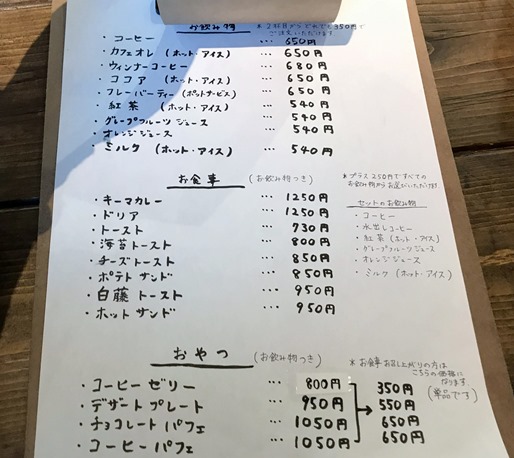 お飲み物
＊2杯目からどれでも350円で
ご注文いただけます
・コーヒー … 650円
・カフェオレ (ホット・アイス) … 650円
・ウィンナーコーヒー … 680円
・ココア (ホット・アイス) … 650円
・フレーバーティー(ポットサービス) … 650円
・紅茶 (ホット・アイス) … 540円
・グレープフルーツジュース … 540円
・オレンジジュース … 540円
・ミルク (ホット・アイス) … 540円
お食事 (お飲み物つき)
・キーマカレー … 1250円
・ドリア … 1250円
・トースト … 730円
・海苔トースト … 800円
・チーズトースト … 850円
・ポテトサンド … 850円
・白藤トースト … 950円
・ホットサンド … 950円
＊プラス250円ですべての
お飲み物からお選びいただけます
セットのお飲み物
・コーヒー
・水出しコーヒー
・紅茶(ホット・アイス)
・グレープフルーツジュース
・オレンジジュース
・ミルク(ホット・アイス)
おやつ (お飲み物つき)
＊お食事お召し上がりの方は
こちらの価格に
なります
(単品です)
・コーヒーゼリー … 800円 350円
・デザートプレート … 950円 → 550円
・チョコレートパフェ … 1050円 650円
・コーヒーパフェ … 1050円 650円